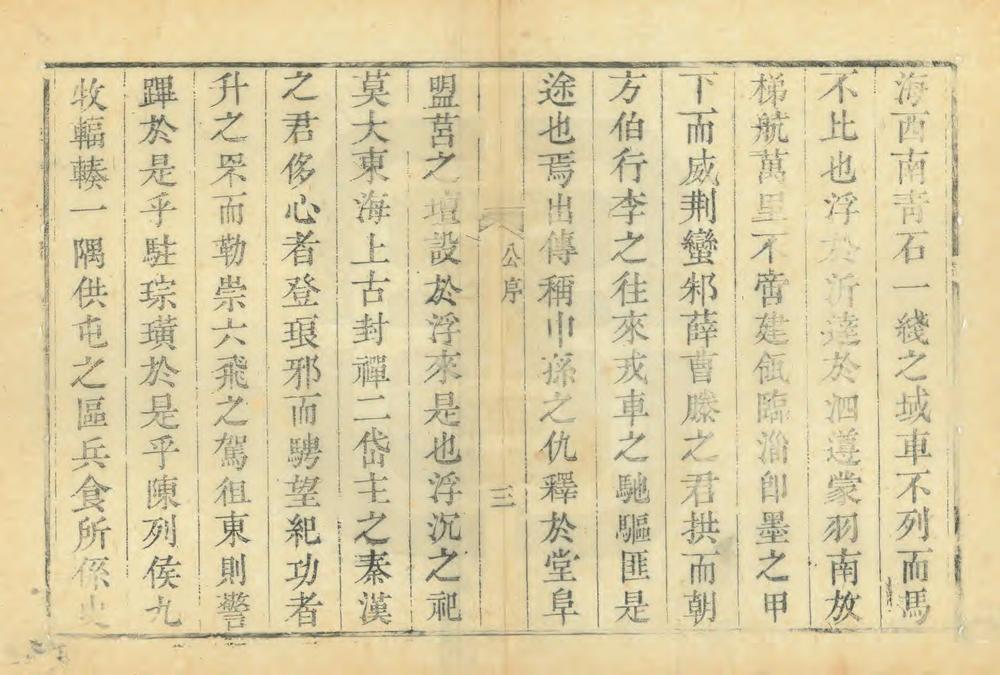 海西南青石一綫之域車不列而馬
不比也浮於沂達於泗遵蒙羽南放
梯航萬里不啻建瓴臨淄卽墨之甲
下而威荆蠻邾薛曹滕之君拱而朝
方伯行李之往來戎車之馳驅匪是
途也焉出傳稱中孫之仇釋於堂阜
公序
三
盟莒之壇設於浮來是也浮沉之祀
莫大東海上古封禪二岱主之秦漢
之君侈心者登琅邪而騁望紀功者
升之罘而勒崇六飛之駕徂東則警
蹕於是乎駐琮璜於是乎陳列侯九
牧輻輳一隅供屯之區兵食所係史